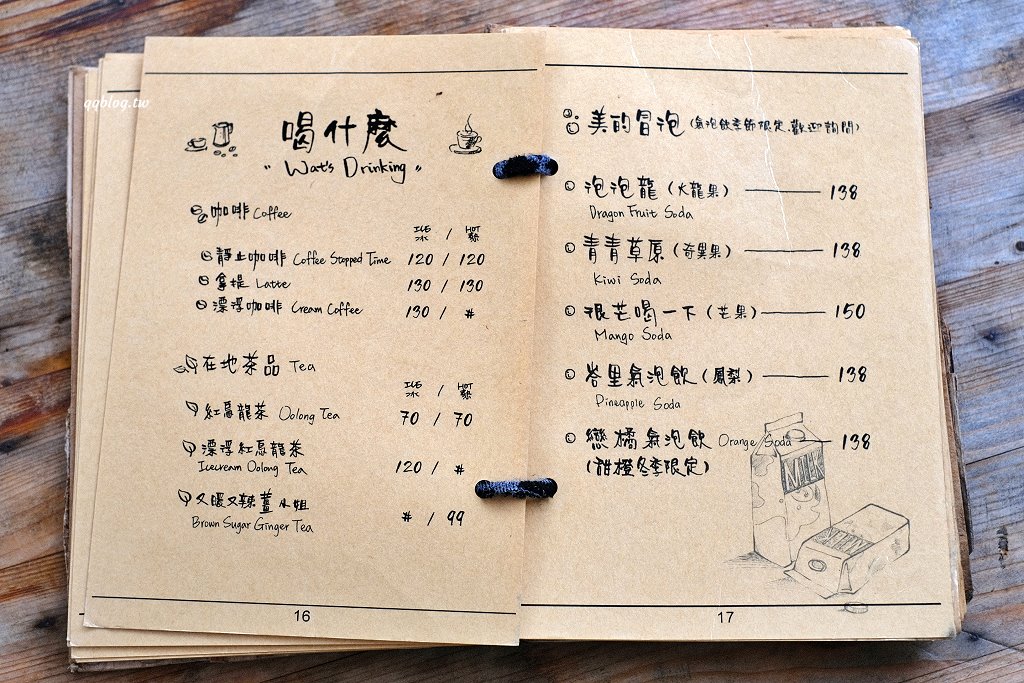 qqblog.tw
喝什麼
"Wat's Drinking"
咖啡 Coffee
ICE 冰 / HOT 熱
靜止咖啡 Coffee Stopped Time 120 / 120
拿提 Latte 130 / 130
漂浮咖啡 Cream Coffee 130 / #
在地茶品 Tea
ICE 冰 / HOT 熱
紅烏龍茶 Oolong Tea 70 / 70
漂浮紅烏龍茶
Icecream Oolong Tea 120 / #
又暖又辣薑小姐
Brown Sugar Ginger Tea # / 99
16
美的冒泡 (氣泡飲季節限定,歡迎詢問)
泡泡龍 (火龍果) 138
Dragon Fruit Soda
青青草原 (奇異果) 138
Kiwi Soda
很芒喝一下 (芒果) 150
Mango Soda
峇里氣泡飲 (鳳梨) 138
Pineapple Soda
戀橘氣泡飲 Orange Soda 138
(甜橙冬季限定)
MILK
17